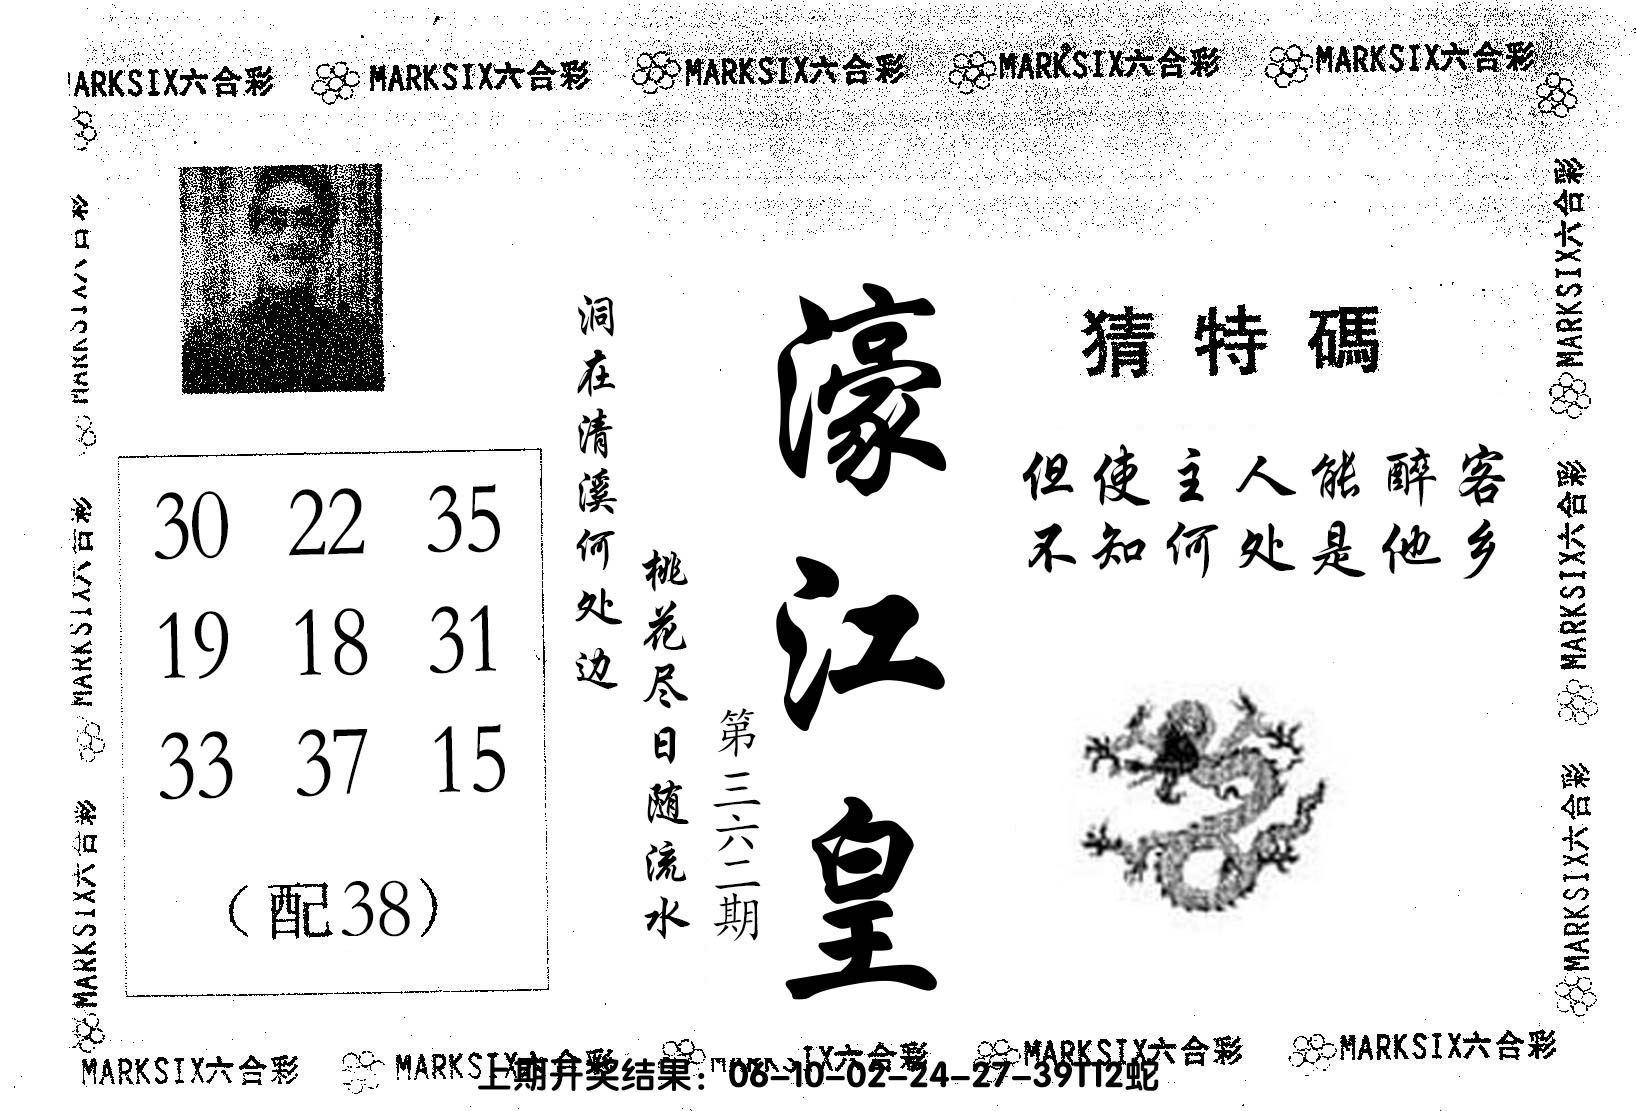 MARKSIX六合彩 MARKSIX六合彩 MARKSIX六合彩 MARKSIX六合彩 MARKSIX六合彩
MARKSIX六合彩
MARKSIX六合彩
MARKSIX六合彩
30 22 35
19 18 31
33 37 15
（配38）
洞在清溪何处边
桃花尽日随流水
第三六二期
濠江皇
猜特碼
但使主人能醉客
不知何处是他乡
MARKSIX六合彩
MARKSIX六合彩
MARKSIX六合彩
MARKSIX六合彩 MARKSIX六合彩 MARKSIX六合彩 MARKSIX六合彩 MARKSIX六合彩
上期开奖结果：06-10-02-24-27-39T12蛇